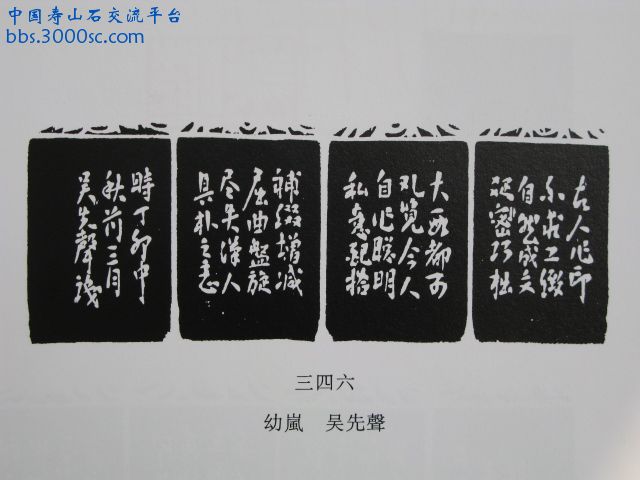 中国寿山石交流平台
bbs.3000sc.com
古人作印
不求工緻
自然成文
疎密巧拙
大段都可
觀覽今人
自作聰明
私意配搭
補綴增減
屈曲盤旋
尽失漢人
真朴之意
時丁卯中
秋前
吴先聲識
三四六
幼嵐 吴先聲